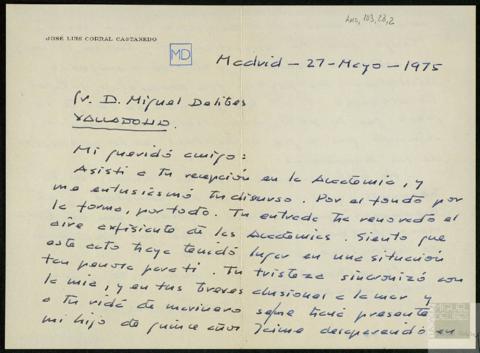 AMD, 103, 28, 2
JOSÉ LUIS CORRAL CASTANEDO
MD
Madrid - 27 - Mayo - 1975
Sr. D. Miguel Delibes
VALLADOLID.
Mi querido amigo:
Asistí a tu recepción en la Academia, y
me entusiasmó tu discurso. Por el fondo, por
la forma, por todo. Tu entrada ha renovado el
aire asfixiante de las Academias. Siento que
este acto haya tenido lugar en una situación
tan penosa para ti. Tu tristeza sincronizó con
la mía, y en tus breves alusiones a la mar y
a tu vida de marinero se me hacía presente
mi hijo de quince años Jaime desaparecido en